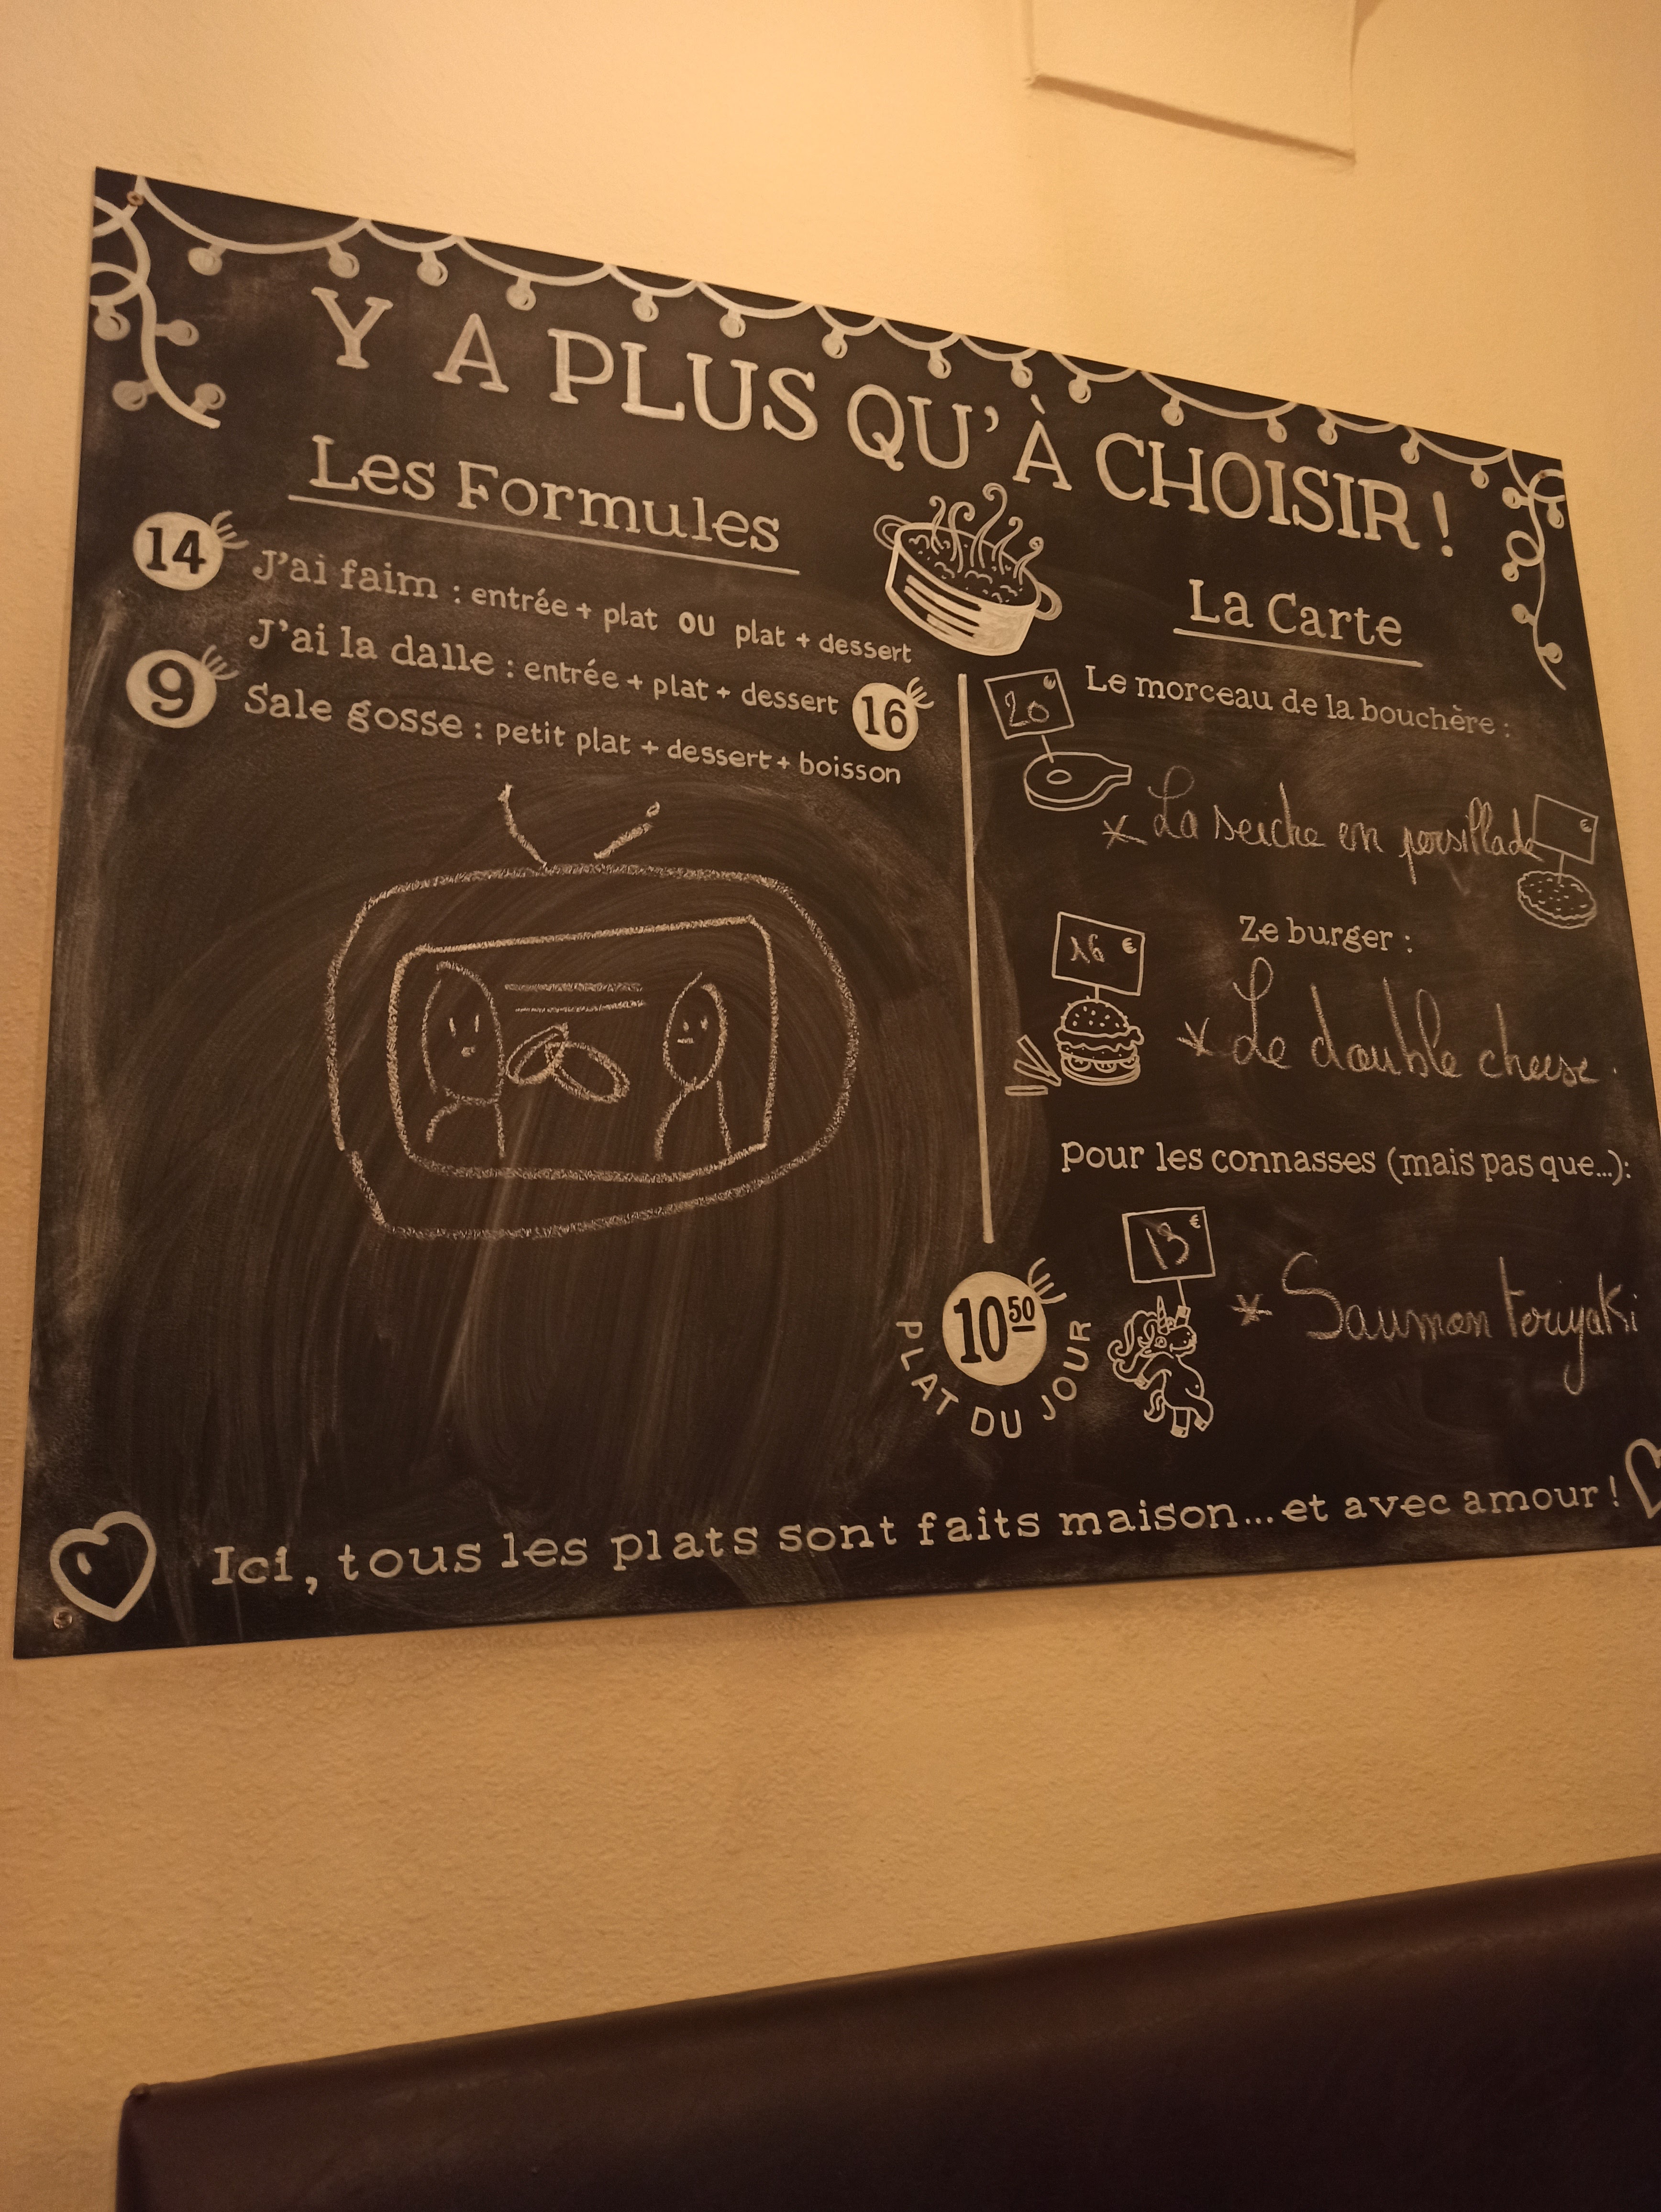 Y A PLUS QU'À CHOISIR !
Les Formules
14 € J'ai faim : entrée + plat OU plat + dessert
J'ai la dalle : entrée + plat + dessert 16 €
9 € Sale gosse : petit plat + dessert + boisson
La Carte
20 €
Le morceau de la bouchère :
* La seiche en persillade
€
Ze burger :
16 €
* Le double cheese.
pour les connasses (mais pas que...):
13 €
* Saumon teriyaki
10 50 €
PLAT DU JOUR
Ici, tous les plats sont faits maison... et avec amour !